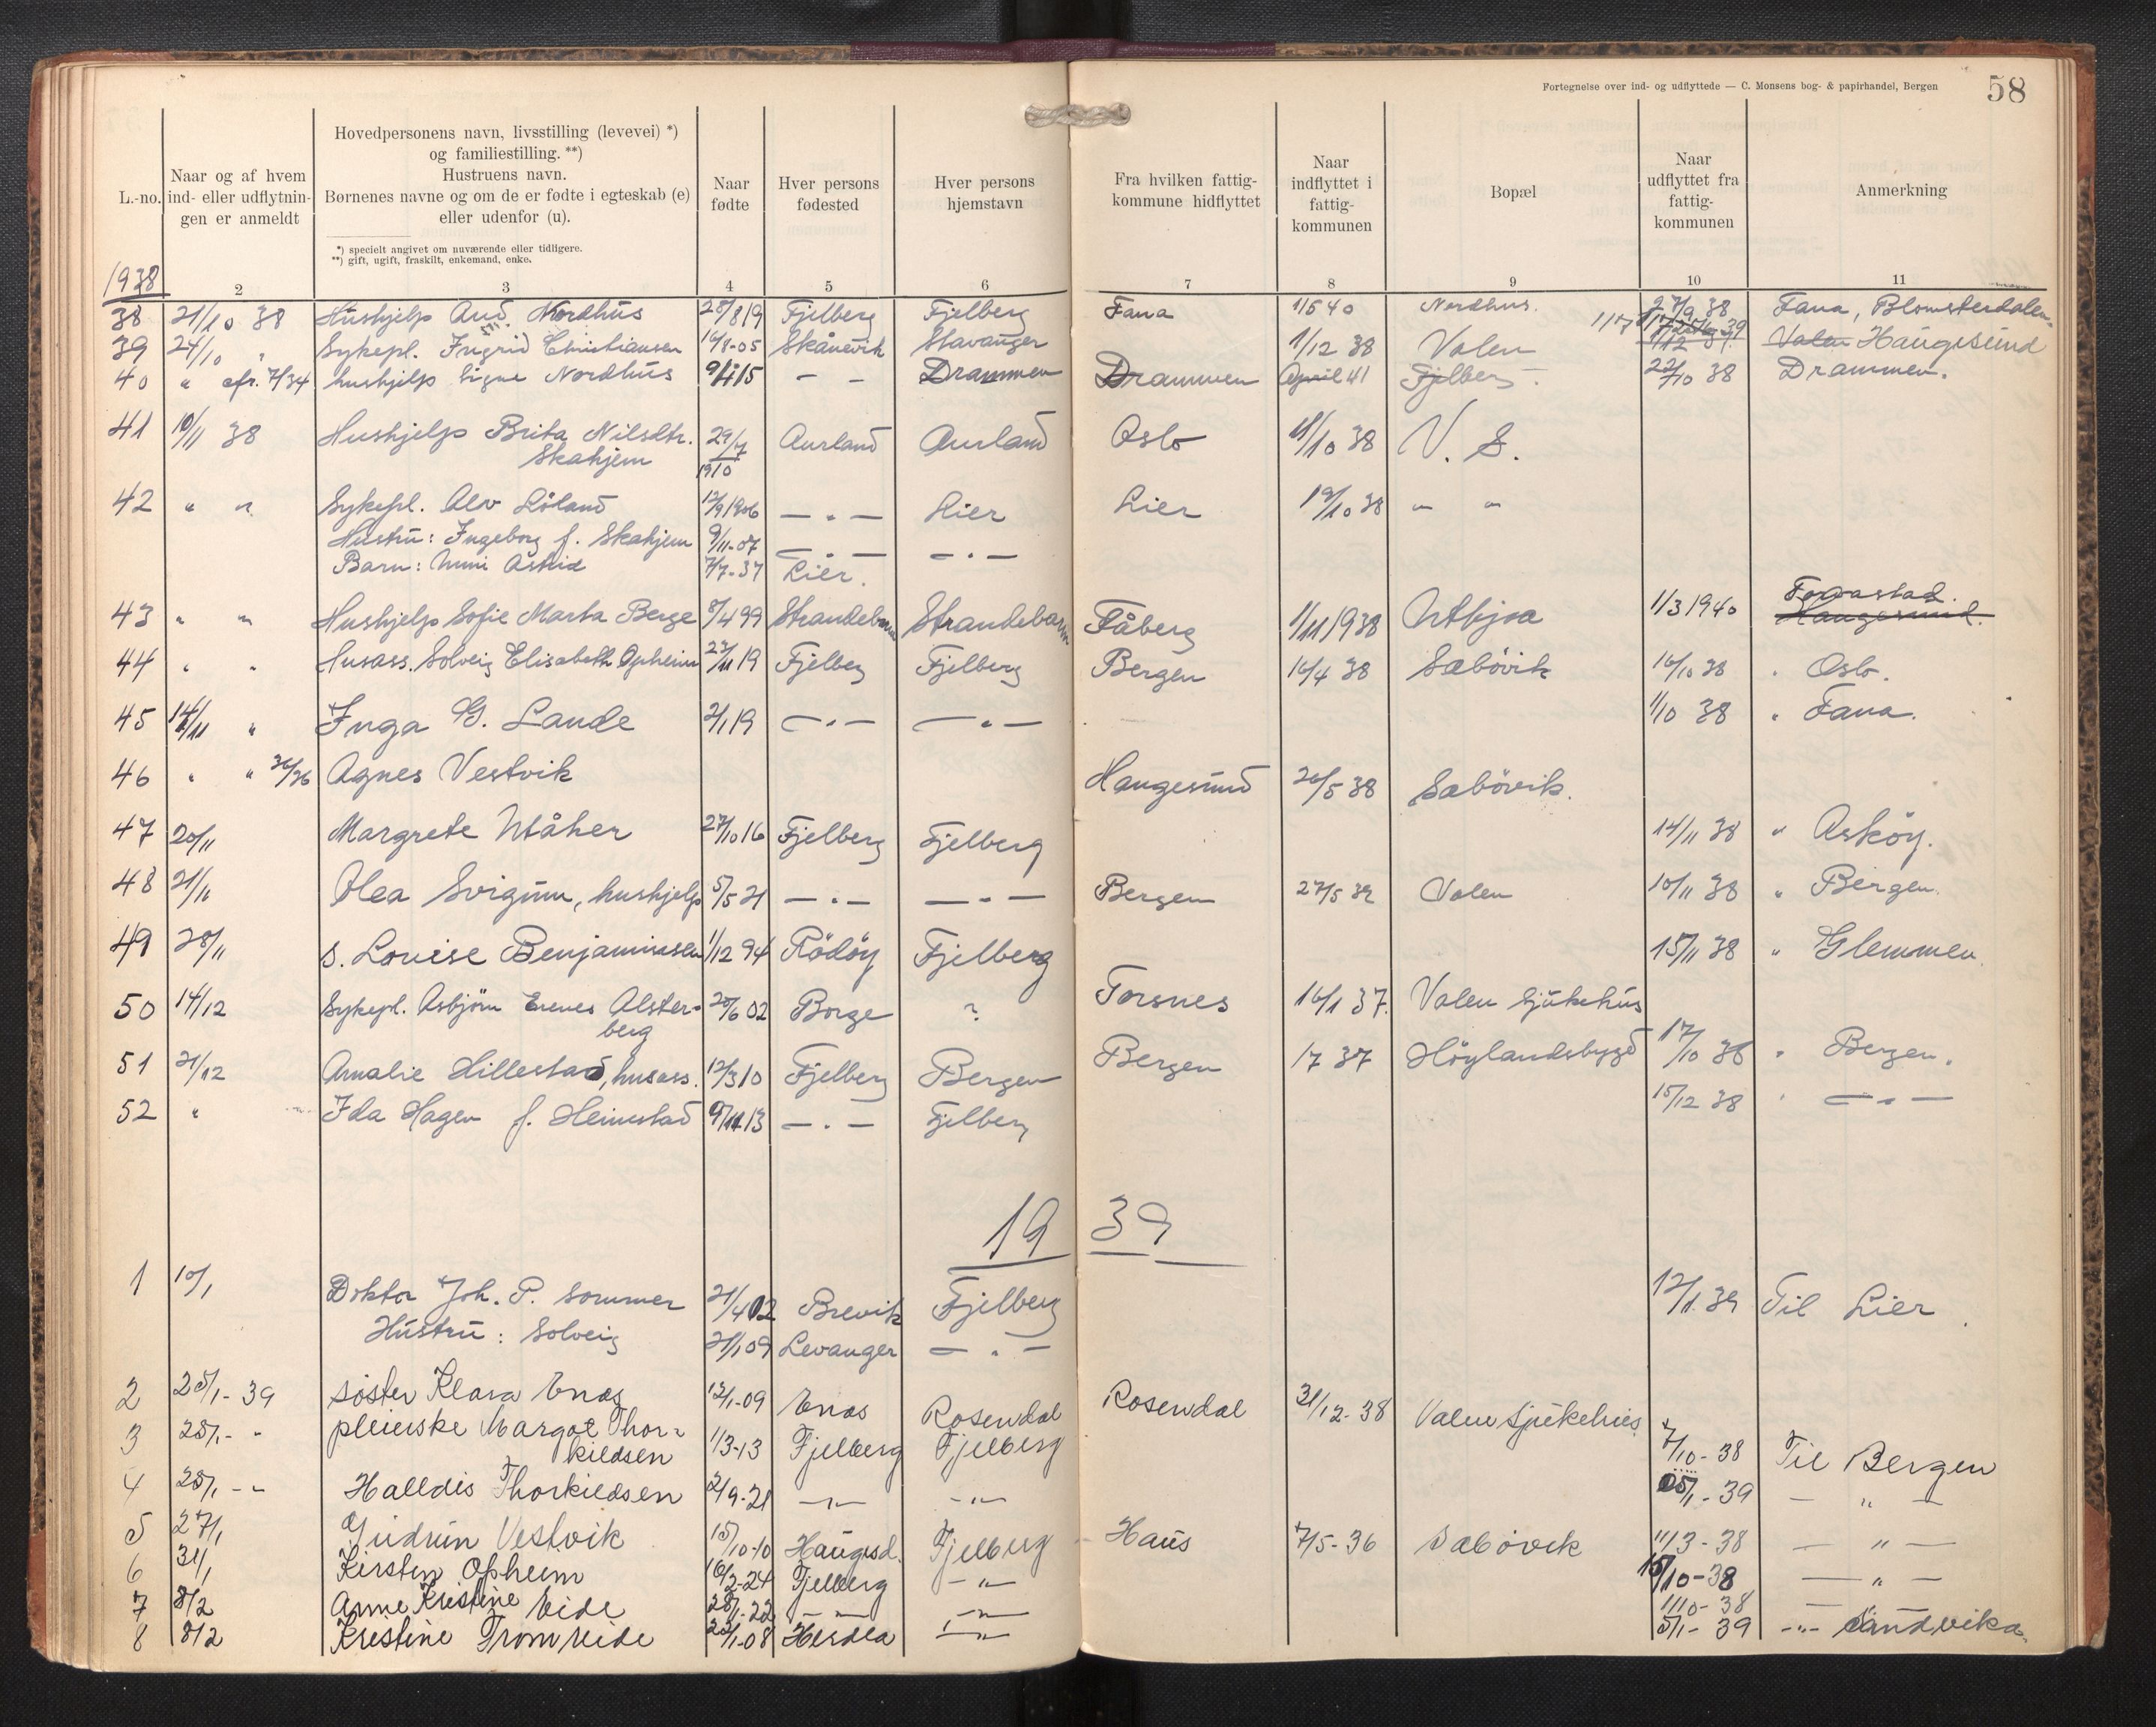 Fortegnelse over ind- og udflyttede — C. Monsens bog- & papirhandel, Bergen
58
L.-no.
Naar og af hvem ind- eller udflytnin-gen er anmeldt
Hovedpersonens navn, livsstilling (levevei) *)
og familiestilling. **)
Hustruens navn.
Børnenes navne og om de er fødte i egteskab (e)
eller udenfor (u).
*) specielt angivet om nuværende eller tidligere.
**) gift, ugift, fraskilt, enkemand, enke.
Naar fødte
Hver persons fødested
Hver persons hjemstavn
Fra hvilken fattig-kommune hidflyttet
Naar indflyttet i fattig-kommunen
Bopæl
Naar udflyttet fra fattig-kommunen
Anmerkning
1938
2 3 4 5 6 7 8 9 10 11
38 21/10 38 Hushjelp Aud Nordhus 28/8 19 Fjelberg Fjelberg Fana 1/5 40 Nordhus. 27/9 38 Fana, Blomsterdalen
39 24/10 " Sykepl. Ingrid Christiansen 16/8-05 Skånevik Stavanger 1/12 38 Valen Valen Haugesund
40 " cfr. 7/34 hushjelp Signe Nordhus 9/1 15 — — Drammen Drammen April 41 Fjelberg 22/10 38 Drammen.
41 10/11 38 Hushjelp Brita Nilsdtr. 29/7 Aurland Aurland Oslo 11/10 38 V. S.
Skahjem 1910
42 " " Sykepl. Alv Löland 12/9 1906 — " — Lier Lier 19/10 38 " "
Hustru: Ingeborg f. Skahjem 9/11-07 — " — — " —
Barn: Mimi Astrid 7/7-37 Lier.
43 " " Hushjelp Sofie Marta Berge 8/4 99 Strandebarm Strandebarm Fåberg 1/11 1938 Utbjoa 1/3 1940 Haugesund.
44 " " Husass. Solveig Elisabeth Opheim 23/11 19 Fjelberg Fjelberg Bergen 16/4 38 Sæbövik 16/10 38 " Oslo.
45 14/11 " Inga G. Lande 2/1 19 — " — — " — 1/10 38 " Fana.
46 " " 36/36 Agnes Vestvik Haugesund 26/5 38 Sæbövik.
47 20/11 Margrete Utåker 27/10 16 Fjelberg Fjelberg 14/11 38 " Asköy.
48 21/11 Olea Svigum, hushjelp 5/5 21 — " — — " — Bergen 27/5 39 Valen 10/11 38 " Bergen.
49 28/11 S. Louise Benjaminsen 1/12 94 Rödöy Fjelberg 15/11 38 " Glemmen.
50 14/12 Sykepl. Asbjörn Alster- 20/6 02 Borge ? Torsnes 16/1 37. Valen Sjukehus
berg
51 21/12 Amalie Hillestad, husass. 12/3 10 Fjelberg Bergen Bergen 1/7 37 Höylandsbygd 17/10 38 " Bergen.
52 " Ida Hagen f. Heimstad 9/11 13 — " — Fjelberg 15/12 38 " — " —
19 39
1 10/1 Doktor Joh. P. Sommer 21/4 02 Brevik Fjelberg 12/1 39 Til Lier.
Hustru: Solveig 21/1 09 Levanger — " —
2 25/1-39 søster Klara Enæs 12/1-09 Enæs Rosendal Rosendal 31/12-38 Valen Sjukehus
3 25/1- " pleierske Margot Thor- 1/3-13 Fjelberg Fjelberg 7/10-38 Til Bergen
kildsen
4 25/1- " Halldis Thorkildsen 2/9-21 — " — — " — 25/1-39 — " —
5 27/1 Gudrun Vestvik 15/10-10 Haugesd. Fjelberg Haus 7/5-36 Sæbövik 11/3-38 — " —
6 31/1 Kirsten Opheim 16/2-24 Fjelberg — " — 15/10-38 — " —
7 8/2 Anne Kristine Eide 28/1-22 — " — — " — 1/10-38 — " —
8 8/2 Kristine Tromreide 22/1-08 Herdla — " — 5/1-39 — " — Sandvika.